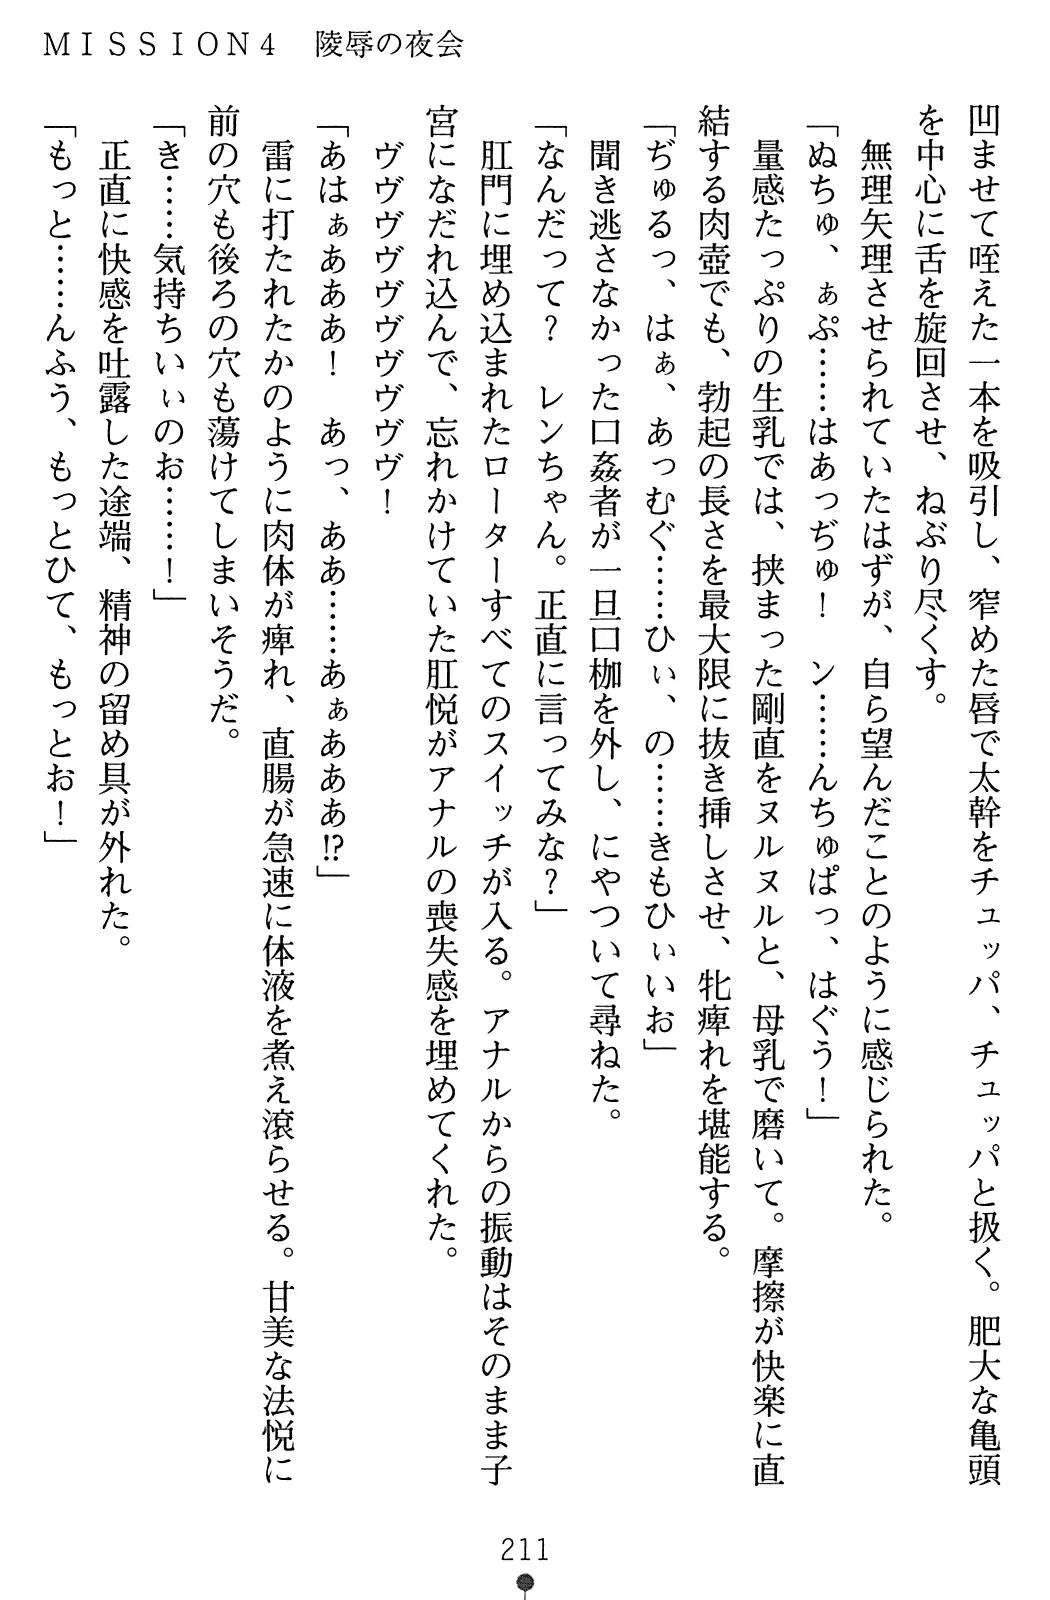 MISSION4 陵辱の夜会
凹ませて咥えた一本を吸引し、窄めた唇で太幹をチュッパ、チュッパと扱く。肥大な亀頭
を中心に舌を旋回させ、ねぶり尽くす。
無理矢理させられていたはずが、自ら望んだことのように感じられた。
「ぬちゅ、ぁぷ……はあっぢゅ！ ン……んちゅぱっ、はぐう！」
量感たっぷりの生乳では、挟まった剛直をヌルヌルと、母乳で磨いて。摩擦が快楽に直
結する肉壺でも、勃起の長さを最大限に抜き挿しさせ、牝痺れを堪能する。
「ぢゅるっ、はぁ、あっむぐ……ひぃ、の……きもひぃいお」
聞き逃さなかった口姦者が一旦口枷を外し、にやついて尋ねた。
「なんだって？ レンちゃん。正直に言ってみな？」
肛門に埋め込まれたローターすべてのスイッチが入る。アナルからの振動はそのまま子
宮になだれ込んで、忘れかけていた肛悦がアナルの喪失感を埋めてくれた。
ヴヴヴヴヴヴヴヴヴ！
「あはぁあああ！ あっ、ああ……あぁあああ!?」
雷に打たれたかのように肉体が痺れ、直腸が急速に体液を煮え滾らせる。甘美な法悦に
前の穴も後ろの穴も蕩けてしまいそうだ。
「き……気持ちいぃのお……！」
正直に快感を吐露した途端、精神の留め具が外れた。
「もっと……んふう、もっとひて、もっとお！」
211